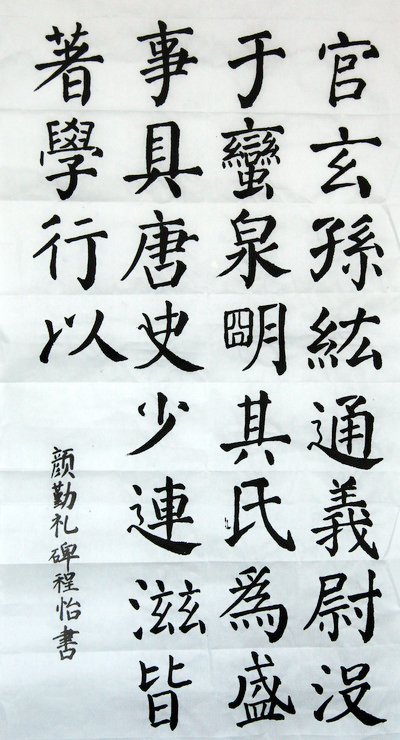 官玄孫紘通義尉没
于蠻泉明其氏為盛
事具唐史少連滋皆
著學行以
颜勤礼碑程怡書